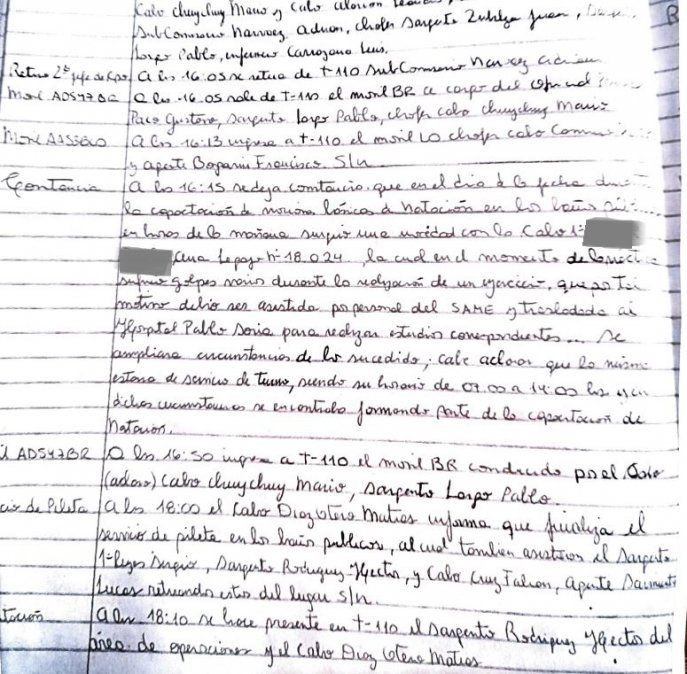 Cabo Chuychuy Mario y Cabo
SubComisario Narvaez Adrian, chofer Sargento Zubelza Juan,
Largo Pablo, enfermero Carrazana Luis.
Retiro 2do jefe de Cpo. A las 16:05 se retira de T-110 SubComisario Narvaez Adrian
Movil ADS47BR A las 16:05 sale de T-110 el movil BR a cargo del
Paco Gustavo, Sargento Largo Pablo, chofer cabo Chuychuy Mario
Movil A las 16:13 ingresa a T-110 el movil LO chofer cabo
y agente Bogarin Francisco S/n
Constancia A las 16:15 se deja constancia que en el dia de la fecha
la capacitación de nociones básicas de natación en los baños
en horas de la mañana surgio una novedad con la Cabo 1º
Legajo Nº 18.024, la cual en el momento de
sufrio golpes durante la realización de un ejercicio, que por tal
motivo debio ser asistida por personal del SAME y trasladada al
Hospital Pablo Soria para realizar estudios correspondientes... Se
ampliara circunstancias de lo sucedido, cabe aclarar que la misma
estava de servicio de Turno, siendo su horario de 07:00 a 14:00 hs y en
dichas circunstancias se encontraba formando parte de la capacitacion de
Natacion.
ADS47BR A las 16:50 ingresa a T-110 el movil BR conducido por el Cabo
Cabo Chuychuy Mario, Sargento Largo Pablo.
de Pileta A las 18:00 el Cabo Diaz Otero Matias informa que finaliza el
servicio de pileta en los baños publicos, al cual tambien asistieron el Sargento
1º Reyes Sergio, Sargento Rodriguez Hector, y Cabo Cruz Fabian, Agente Sarmiento
Lucas retirandose estos del lugar S/n.
A las 18:10 se hace presente en T-110 el Sargento Rodriguez Hector del
área de operaciones y el Cabo Diaz Otero Matias